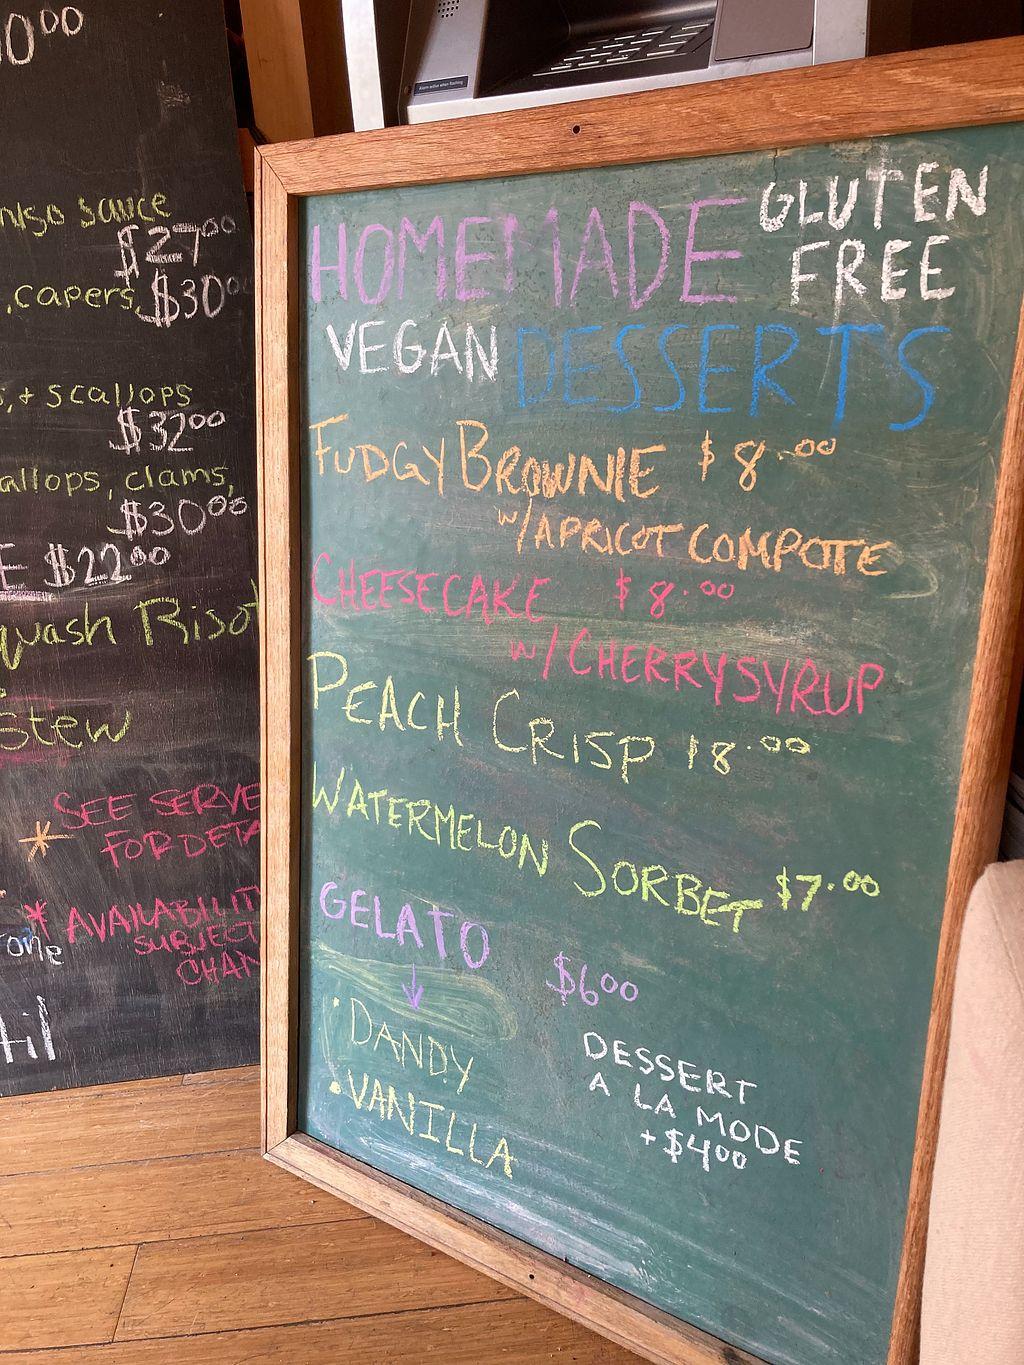 00
miso sauce
$27.00
, capers, $30.00
, + scallops
$32.00
allops, clams,
$30.00
E $22.00
quash Risot
stew
* SEE SERVE
FOR DETA
* AVAILABILIT
SUBJECT
CHAN
one
til
HOMEMADE GLUTEN FREE
VEGAN DESSERTS
FUDGY BROWNIE $8.00
w/APRICOT COMPOTE
CHEESECAKE $8.00
w/CHERRY SYRUP
PEACH CRISP $8.00
WATERMELON SORBET $7.00
GELATO $6.00
↓
• DANDY
• VANILLA
DESSERT
A LA MODE
+$4.00